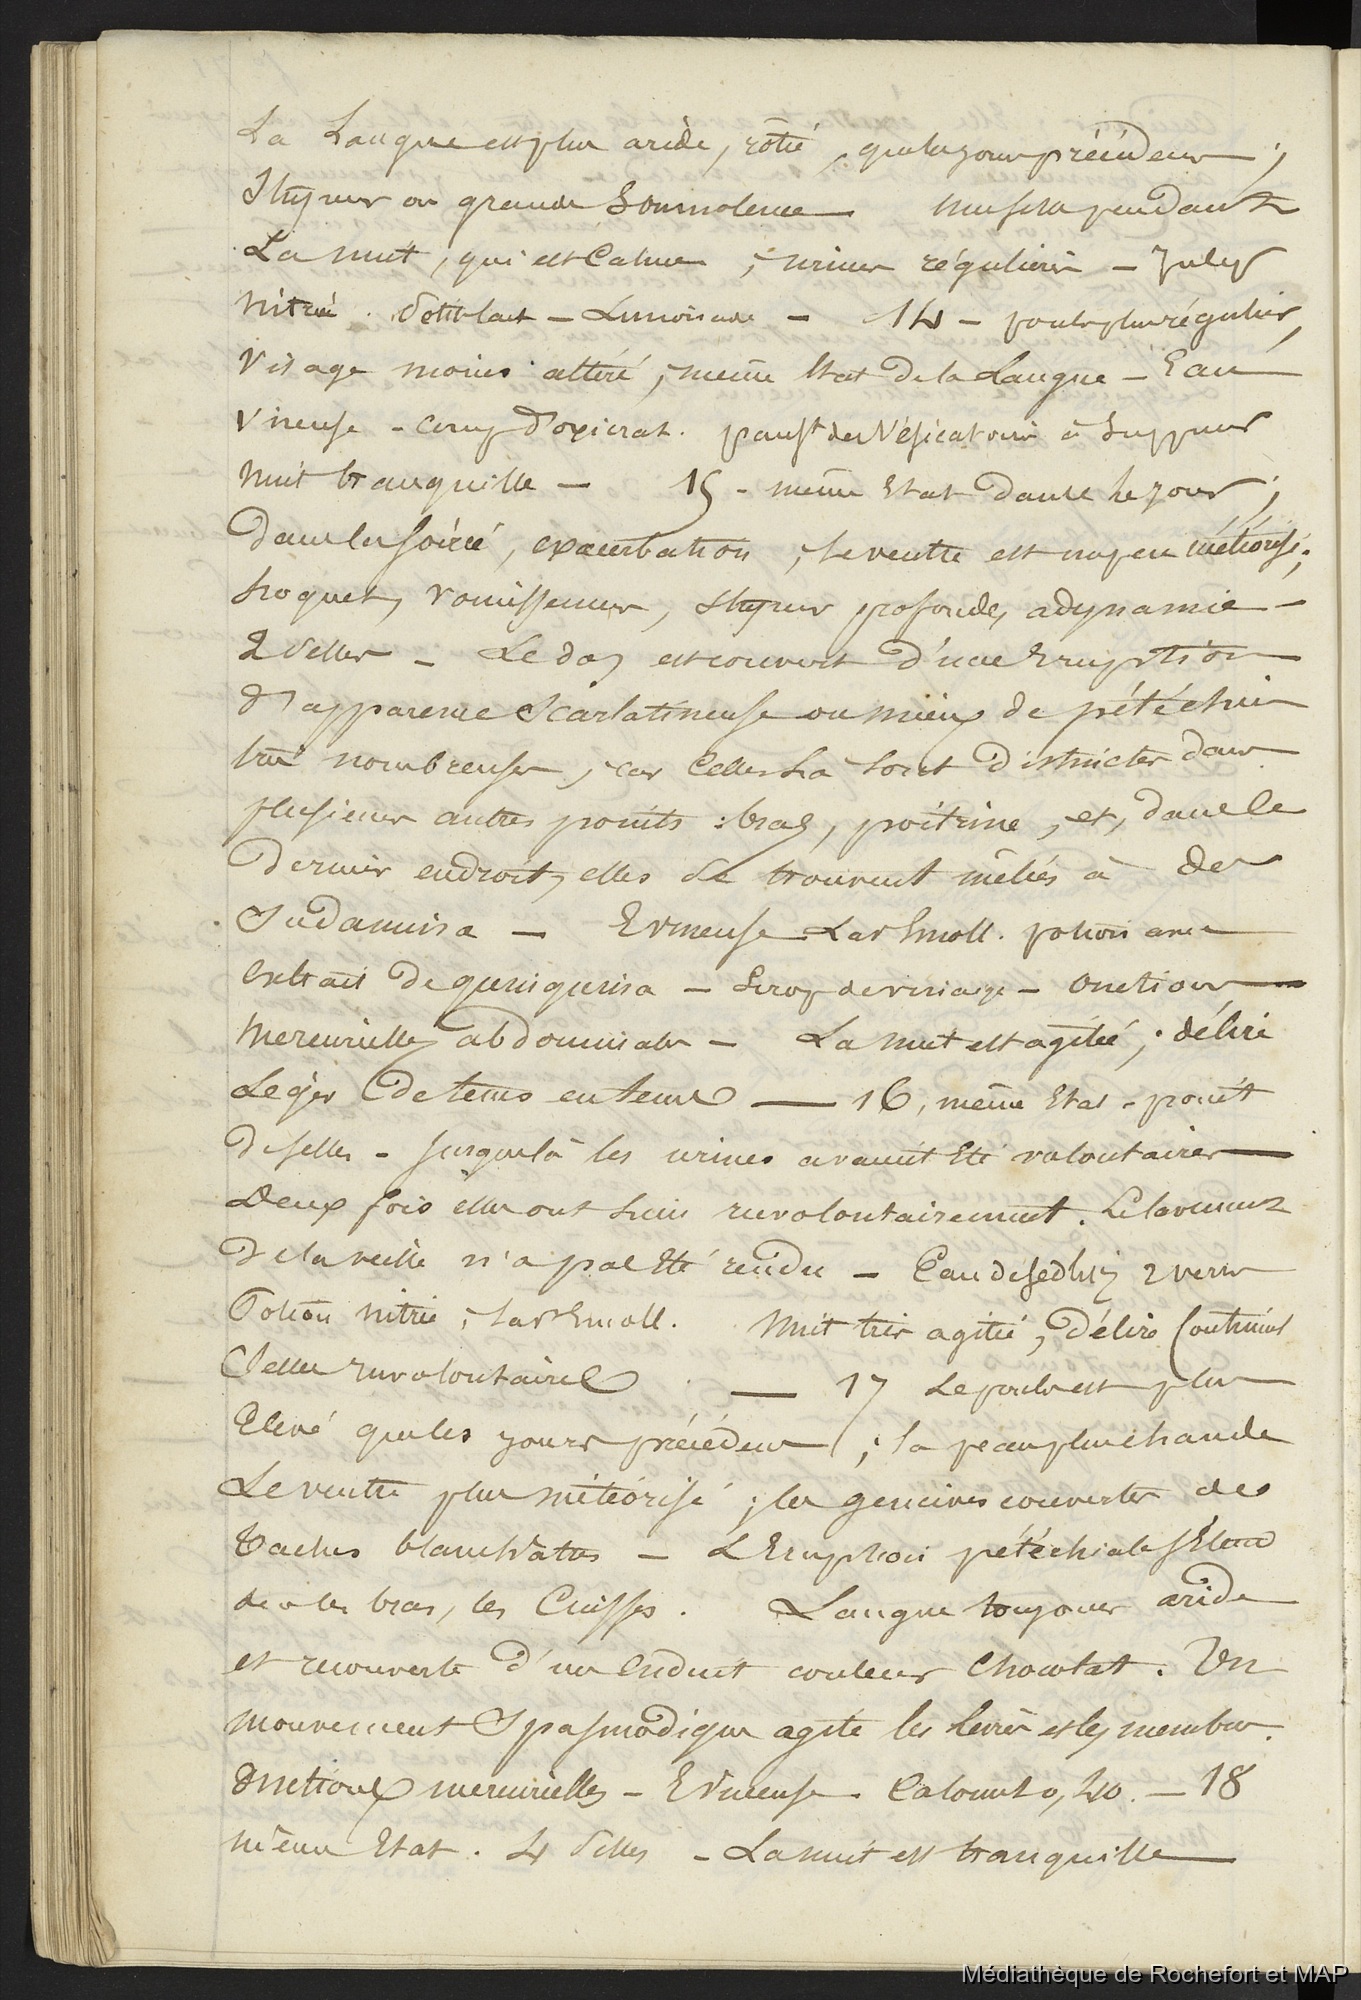 La Langue est plus aride, rôtie, que les jours précédens ;
Stupeur ou grande Somnolence une selle pendant
La nuit, qui est Calme ; urines régulières – Julep
Nitré. Petit lait – Limonade – 14 – pouls plus régulier,
Visage moins altéré, même Etat de la Langue – Eau
Vineuse – Comp. d'oxicrat. pansst des Vésicatoires à Suppurer
Nuit tranquille – 15 – même Etat dans le jour ;
Dans la soirée, exacerbation, le ventre est un peu météorisé ;
hoquets, vomissemens, stupeur profonde, adynamie –
2 selles – Le dos est couvert d'une Eruption
d'apparence Scarlatineuse ou mieux de pétéchies
très nombreuses, car Celles là sont distinctes dans
plusieurs autres points : bras, poitrine, et, dans le
dernier endroit, elles se trouvent mêlées à des
Sudamina – E vineuse Lavt Emoll. potion avec
Extrait de quinquina – Sirop de vinaigre – Onctions
Mercurielles abdominales – La nuit est agitée ; délire
Léger de tems en tems — 16, même Etat – point
de selles – jusque là les urines avaient été volontaires —
Deux fois elles ont lieu involontairement. Le lavement
de la veille n'a pas été rendu – Eau de Sedlitz 2 verres
Potion nitrée, Lavt Emoll. Nuit très agitée, délire Continuel
Selles involontaires — 17 Le pouls est plus
Elevé que les jours précédens ; la peau plus chaude
Le ventre plus météorisé ; les gencives couvertes des
Taches blanchâtres – L'Eruption pétéchiale s'étend
sur les bras, les Cuisses. Langue toujours aride
et recouverte d'un Enduit couleur Chocolat. Un
mouvement Spasmodique agite les lèvres et les membres.
Onctions mercurielles – E Vineuse. Calomel 0,40. – 18
même Etat. 4 Selles – La nuit est tranquille
Médiathèque de Rochefort et MAP